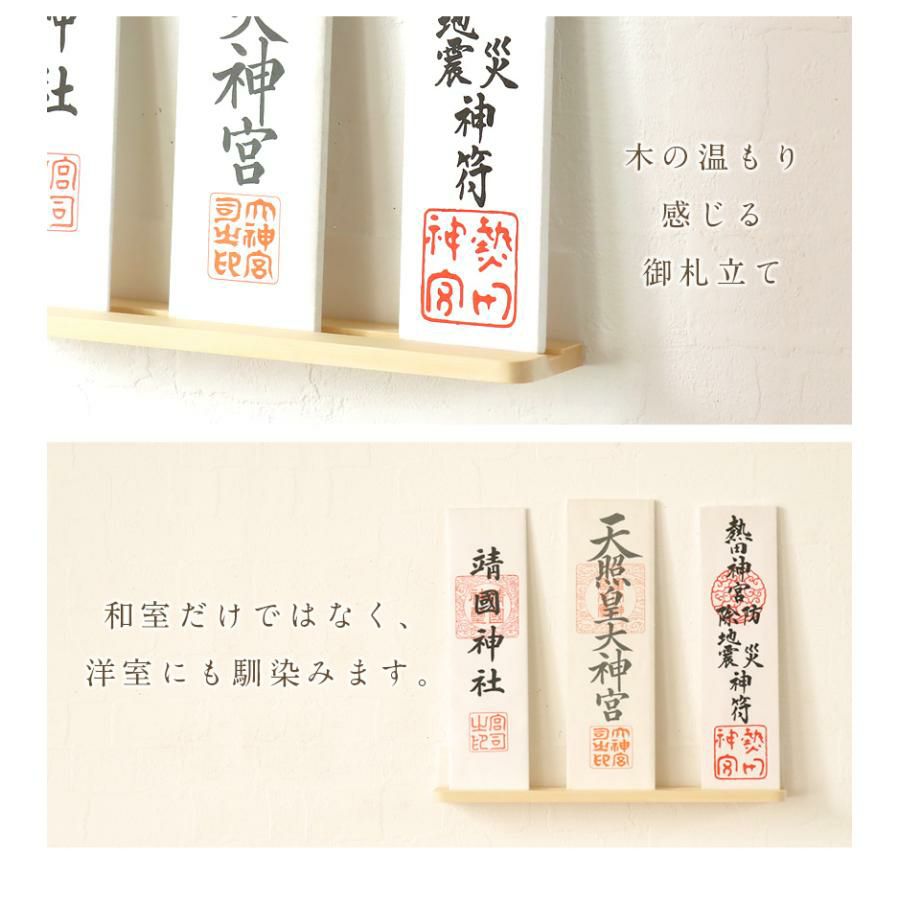 木の温もり
感じる
御札立て
大神宮
大神宮
司之印
地震災
神符
熱田
神宮
神社
宮司
和室だけではなく、
洋室にも馴染みます。
靖國神社
宮司
之印
天照皇大神宮
大神宮
司之印
熱田神宮防
除地震災
神符
熱田
神宮